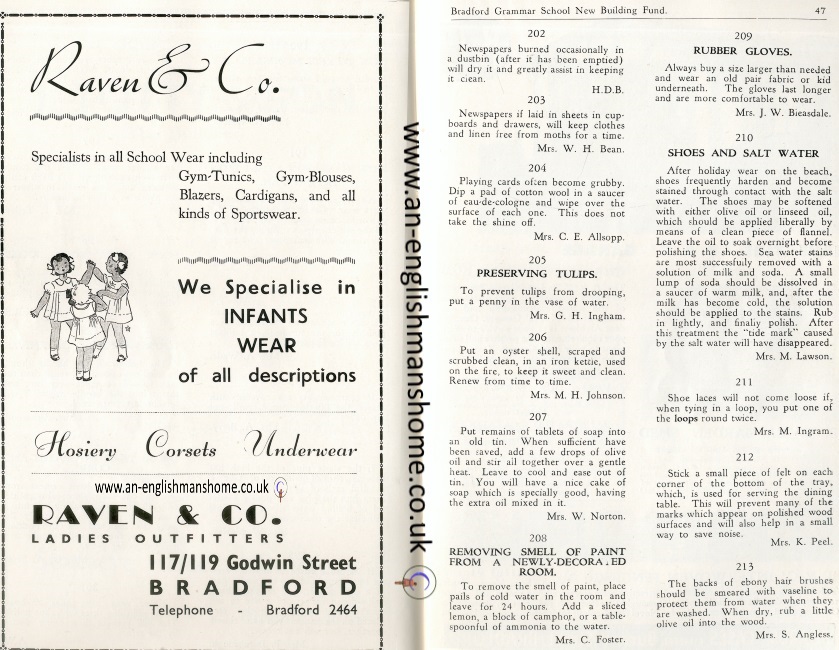 Raven & Co.
Specialists in all School Wear including
Gym-Tunics, Gym-Blouses,
Blazers, Cardigans, and all
kinds of Sportswear.
We Specialise in
INFANTS
WEAR
of all descriptions
Hosiery Corsets Underwear
www.an-englishmanshome.co.uk
RAVEN & CO.
LADIES OUTFITTERS
117/119 Godwin Street
BRADFORD
Telephone - Bradford 2464
www.an-englishmanshome.co.uk
Bradford Grammar School New Building Fund. 47
202
Newspapers burned occasionally in
a dustbin (after it has been emptied)
will dry it and greatly assist in keeping
it clean.
H.D.B.
203
Newspapers if laid in sheets in cup-
boards and drawers, will keep clothes
and linen free from moths for a time.
Mrs. W. H. Bean.
204
Playing cards often become grubby.
Dip a pad of cotton wool in a saucer
of eau-de-cologne and wipe over the
surface of each one. This does not
take the shine off.
Mrs. C. E. Allsopp.
205
PRESERVING TULIPS.
To prevent tulips from drooping,
put a penny in the vase of water.
Mrs. G. H. Ingham.
206
Put an oyster shell, scraped and
scrubbed clean, in an iron kettle, used
on the fire, to keep it sweet and clean.
Renew from time to time.
Mrs. M. H. Johnson.
207
Put remains of tablets of soap into
an old tin. When sufficient have
been saved, add a few drops of olive
oil and stir all together over a gentle
heat. Leave to cool and ease out of
tin. You will have a nice cake of
soap which is specially good, having
the extra oil mixed in it.
Mrs. W. Norton.
208
REMOVING SMELL OF PAINT
FROM A NEWLY-DECORATED
ROOM.
To remove the smell of paint, place
pails of cold water in the room and
leave for 24 hours. Add a sliced
lemon, a block of camphor, or a table-
spoonful of ammonia to the water.
Mrs. C. Foster.
209
RUBBER GLOVES.
Always buy a size larger than needed
and wear an old pair fabric or kid
underneath. The gloves last longer
and are more comfortable to wear.
Mrs. J. W. Bleasdale.
210
SHOES AND SALT WATER
After holiday wear on the beach,
shoes frequently harden and become
stained through contact with the salt
water. The shoes may be softened
with either olive oil or linseed oil,
which should be applied liberally by
means of a clean piece of flannel.
Leave the oil to soak overnight before
polishing the shoes. Sea water stains
are most successfully removed with a
solution of milk and soda. A small
lump of soda should be dissolved in
a saucer of warm milk, and, after the
milk has become cold, the solution
should be applied to the stains. Rub
in lightly, and finally polish. After
this treatment the "tide mark" caused
by the salt water will have disappeared.
Mrs. M. Lawson.
211
Shoe laces will not come loose if,
when tying in a loop, you put one of
the loops round twice.
Mrs. M. Ingram.
212
Stick a small piece of felt on each
corner of the bottom of the tray,
which, is used for serving the dining
table. This will prevent many of the
marks which appear on polished wood
surfaces and will also help in a small
way to save noise.
Mrs. K. Peel.
213
The backs of ebony hair brushes
should be smeared with vaseline to
protect them from water when they
are washed. When dry, rub a little
olive oil into the wood.
Mrs. S. Angless.